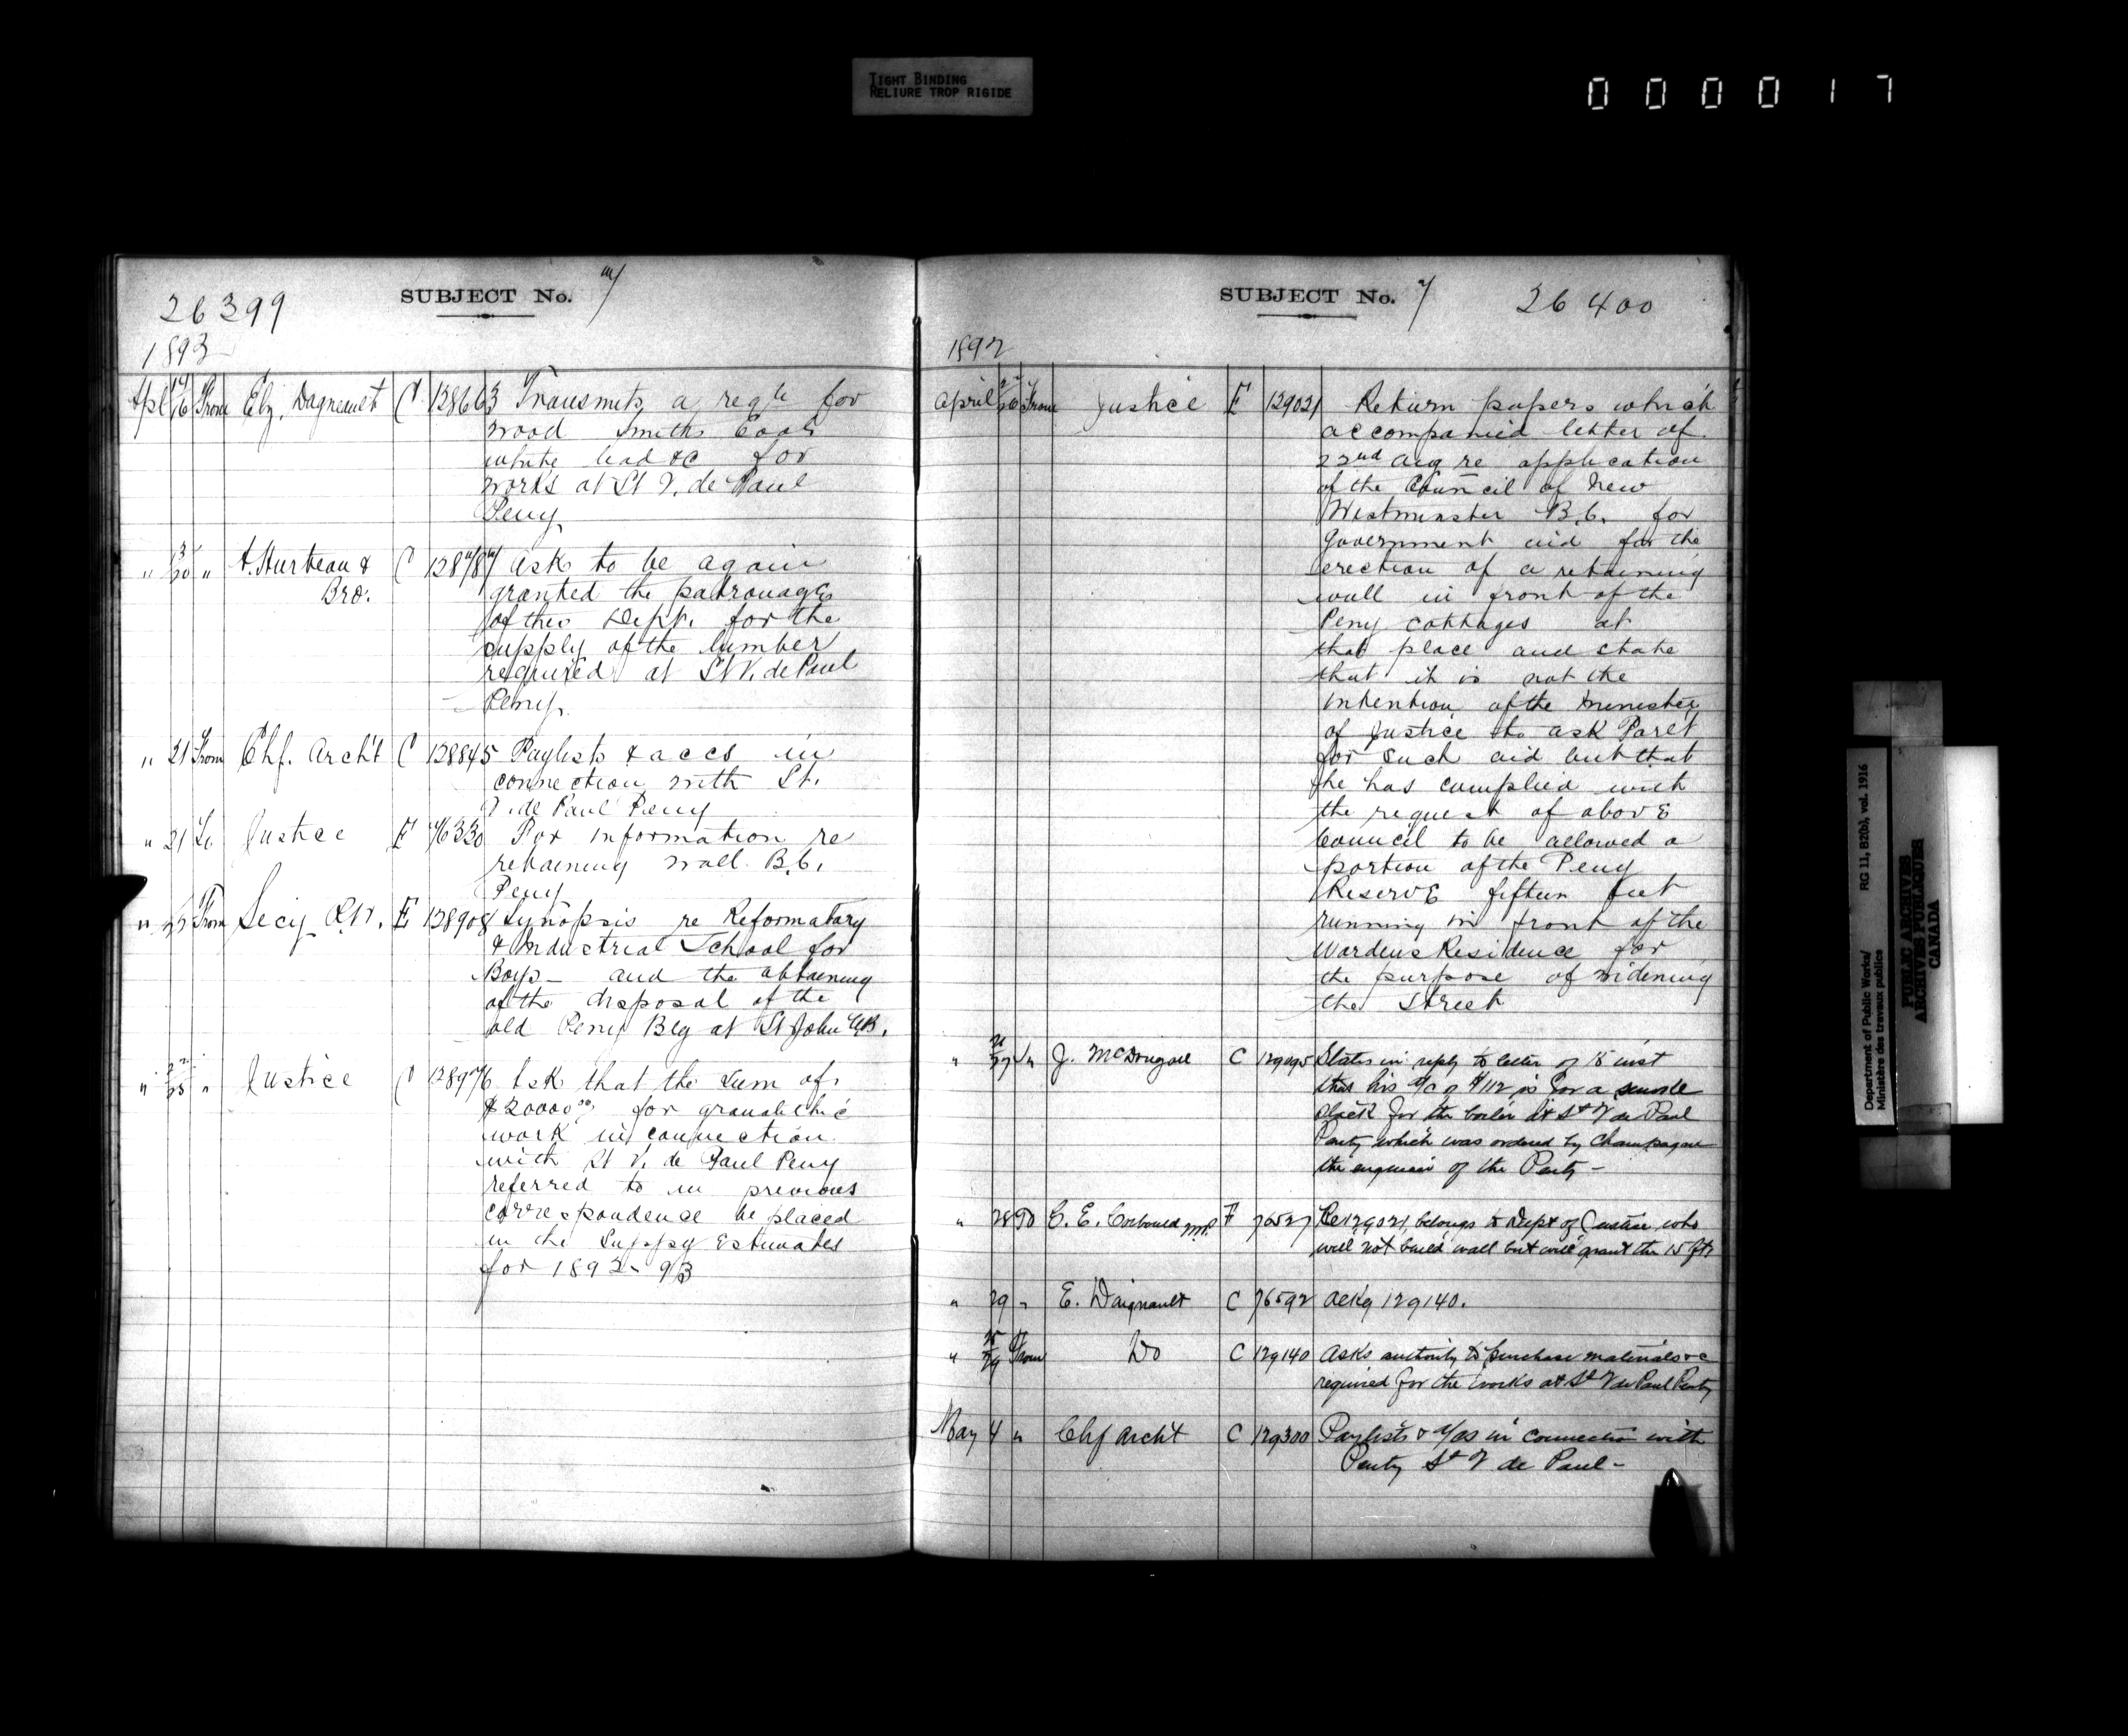 TIGHT BINDING
RELIURE TROP RIGIDE
000017
26399
SUBJECT No. 4
1892
Apl 14/16 From Elz. Dagneault C 128663 Transmits a reqtn for
wood Smiths Coal
white lead &c for
works at St V. de Paul
Peny
" 13/20 " A. Hurteau & C 128787 Ask to be again
Bro. granted the patronage
of this Dept. for the
supply of the lumber
required at St V. de Paul
Peny.
" 21 From Chf. Archt C 128845 Paylists & accs in
connection with St.
V. de Paul Peny
" 21 To Justice E 76330 For information re
retaining wall B.C.
Peny
" From Secy P.W. E 128908 Synopsis re Reformatory
& Industrial School for
Boys - and the obtaining
of the disposal of the
old Peny Blg at St John N.B.
" 22/25 " Justice C 128976 Ask that the sum of
$20000.00 for
work in connection
with St V. de Paul Peny
referred to in previous
correspondence be placed
in the Suppy Estimates
for 1892-93
SUBJECT No. 4
26400
1892
April From Justice E 129021 Return papers which
accompanied letter of
22nd Aug re application
of the Council of New
Westminster B.C. for
Government aid for the
erection of a retaining
wall in front of the
Peny cottages at
that place and state
that it is not the
intention of the Minister
of Justice to ask Parlt
for such aid but that
he has complied with
the request of above
Council to be allowed a
portion of the Peny
Reserve fifteen feet
running in front of the
Wardens Residence for
the purpose of widening
the Street
" 27 " J. McDougall C 129095 States in reply to letter of 15 inst
that his a/c of $112 is for a smoke
stack for the boiler at St V de Paul
Penty which was ordered by Champagne
the engineer of the Penty -
" 28 To G. E. Corbould M.P. E 76527 Re 129021, belongs to Dept of Justice, who
will not build wall but will grant the 15 fts
" 29 " E. Daignault C 76592 Ackg 129140.
" 25/29 From Do C 129140 Asks authority to purchase materials &c
required for the works at St V de Paul Penty
May 4 " Chf Archt C 129300 Paylists & a/cs in connection with
Penty St V de Paul -
Department of Public Works/
Ministère des travaux publics
RG 11, B2(b), vol. 1916
PUBLIC ARCHIVES
ARCHIVES PUBLIQUES
CANADA